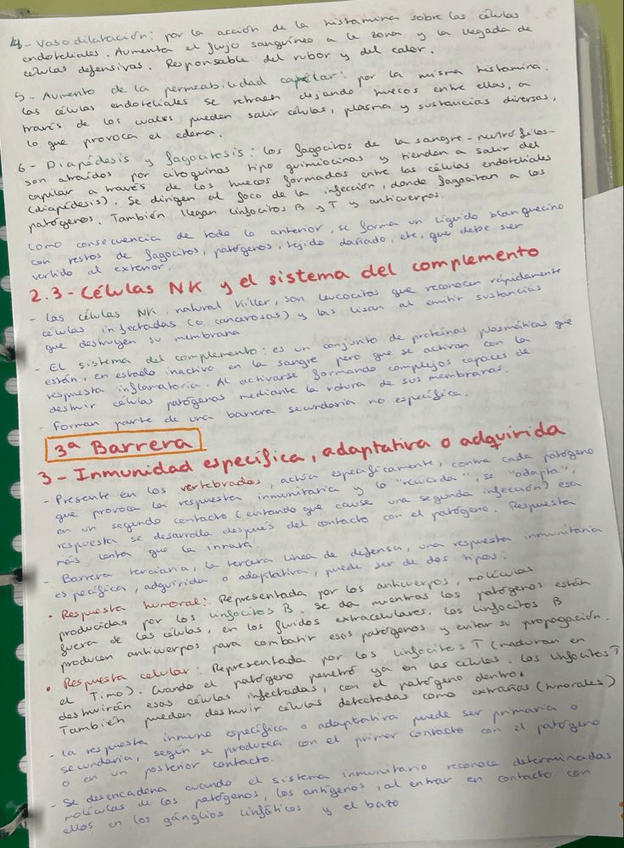 4- Vasodilatación: por la acción de la histamina sobre las células
endoteliales. Aumenta el flujo sanguíneo a la zona y la llegada de
células defensivas. Responsable del rubor y del calor.
5- Aumento de la permeabilidad capilar: por la misma histamina.
las células endoteliales se retraen dejando huecos entre ellas, a
través de los cuales pueden salir células, plasma y sustancias diversas,
lo que provoca el edema.
6- Diapédesis y fagocitosis: los fagocitos de la sangre-neutrófilos-
son atraídos por citoquinas tipo quimiocinas y tienden a salir del
capilar a través de los huecos formados entre las células endoteliales
(diapédesis). Se dirigen al foco de la infección, donde fagocitan a los
patógenos. También llegan linfocitos B y T y anticuerpos.
Como consecuencia de todo lo anterior, se forma un líquido blanquecino
con restos de fagocitos, patógenos, tejido dañado, etc, que debe ser
vertido al exterior.
2.3- Células NK y el sistema del complemento
- Las células NK, natural killer, son leucocitos que reconocen rápidamente
células infectadas (o cancerosas) y las lisan al emitir sustancias
que destruyen su membrana
- El sistema del complemento: es un conjunto de proteínas plasmáticas que
están, en estado inactivo en la sangre pero que se activan con la
respuesta inflamatoria. Al activarse forman complejos capaces de
destruir células patógenas mediante la rotura de sus membranas.
- Forman parte de una barrera secundaria no específica.
3ª Barrera
3- Inmunidad específica, adaptativa o adquirida
- Presente en los vertebrados, actúa específicamente, contra cada patógeno
que provoca la respuesta inmunitaria y lo "recuerda", se "adapta",
en un segundo contacto (evitando que cause una segunda infección) esa
respuesta se desarrolla después del contacto con el patógeno. Respuesta
más lenta que la innata
- Barrera terciaria, la tercera línea de defensa, una respuesta inmunitaria
específica, adquirida o adaptativa, puede ser de dos tipos:
• Respuesta humoral: Representada por los anticuerpos, moléculas
producidas por los linfocitos B. Se da mientras los patógenos están
fuera de las células, en los fluidos extracelulares. Los linfocitos B
producen anticuerpos para combatir esos patógenos y evitar su propagación.
• Respuesta celular: Representada por los linfocitos T (maduran en
el Timo). Cuando el patógeno penetró ya en las células. Los linfocitos T
destruirán esas células infectadas, con el patógeno dentro.
También pueden destruir células detectadas como extrañas (tumorales)
- La respuesta inmune específica o adaptativa puede ser primaria o
secundaria, según se produzca con el primer contacto con el patógeno
o en un posterior contacto.
- Se desencadena cuando el sistema inmunitario reconoce determinadas
moléculas de los patógenos, los antígenos, al entrar en contacto con
ellos en los gánglios linfáticos y el bazo